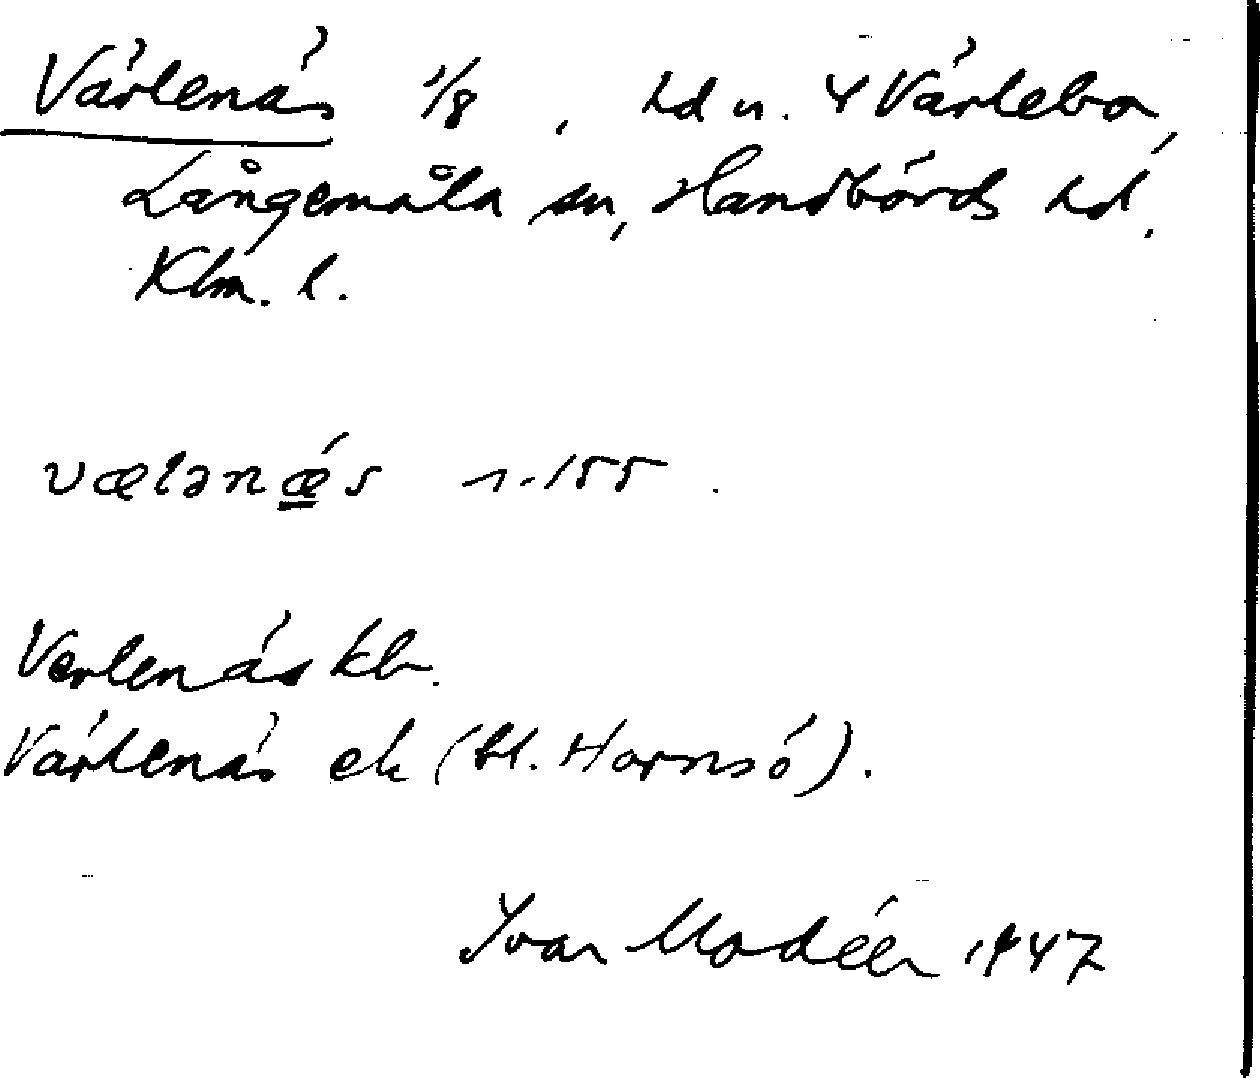 Värlenäs 1/8, hd u. Y Värlebo,
Långemåla sn, Handbörds hd.
Klm. l.
vælənǽs 1.155.
Verlenäs kb.
Värlenäs ek (bl. Hornsö).
Ivar Modéer 1947